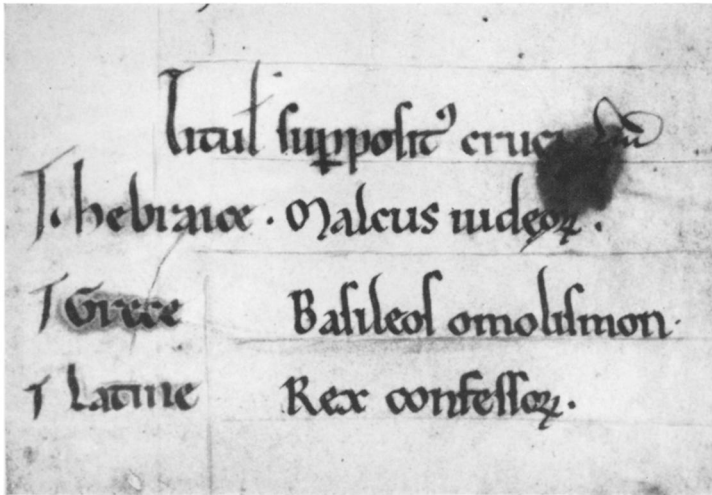 Titul suppositꝰ cruci
T. hebraice. Malcus iudeoꝝ.
T Grece Basileos omolismon.
T Latine Rex confessoꝝ.